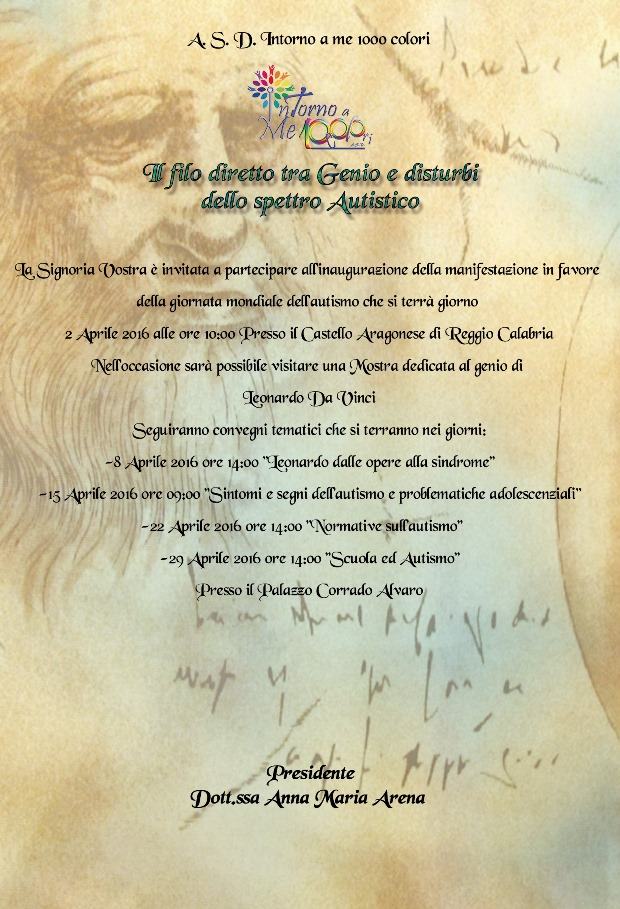 A. S. D. Intorno a me 1000 colori
Intorno a
Me 1000
Il filo diretto tra Genio e disturbi
dello spettro Autistico
La Signoria Vostra è invitata a partecipare all'inaugurazione della manifestazione in favore
della giornata mondiale dell'autismo che si terrà giorno
2 Aprile 2016 alle ore 10:00 Presso il Castello Aragonese di Reggio Calabria
Nell'occasione sarà possibile visitare una Mostra dedicata al genio di
Leonardo Da Vinci
Seguiranno convegni tematici che si terranno nei giorni:
-8 Aprile 2016 ore 14:00 "Leonardo dalle opere alla sindrome"
-15 Aprile 2016 ore 09:00 "Sintomi e segni dell'autismo e problematiche adolescenziali"
-22 Aprile 2016 ore 14:00 "Normative sull'autismo"
-29 Aprile 2016 ore 14:00 "Scuola ed Autismo"
Presso il Palazzo Corrado Alvaro
Presidente
Dott.ssa Anna Maria Arena